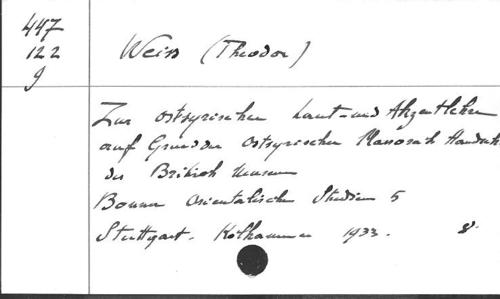 447
122
g
Weiss (Theodor)
Zur ostsyrischen Laut- und Akzentlehre
auf Grund der ostsyrischen Massorah Handsch
des British Museum
Bonner Orientalische Studien 5
Stuttgart. Kohlhammer 1933. 8°